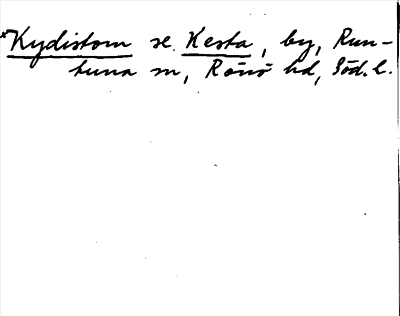 *Kydistom se. Kesta, by, Run-
tuna sn, Rönö hd, Söd. l.